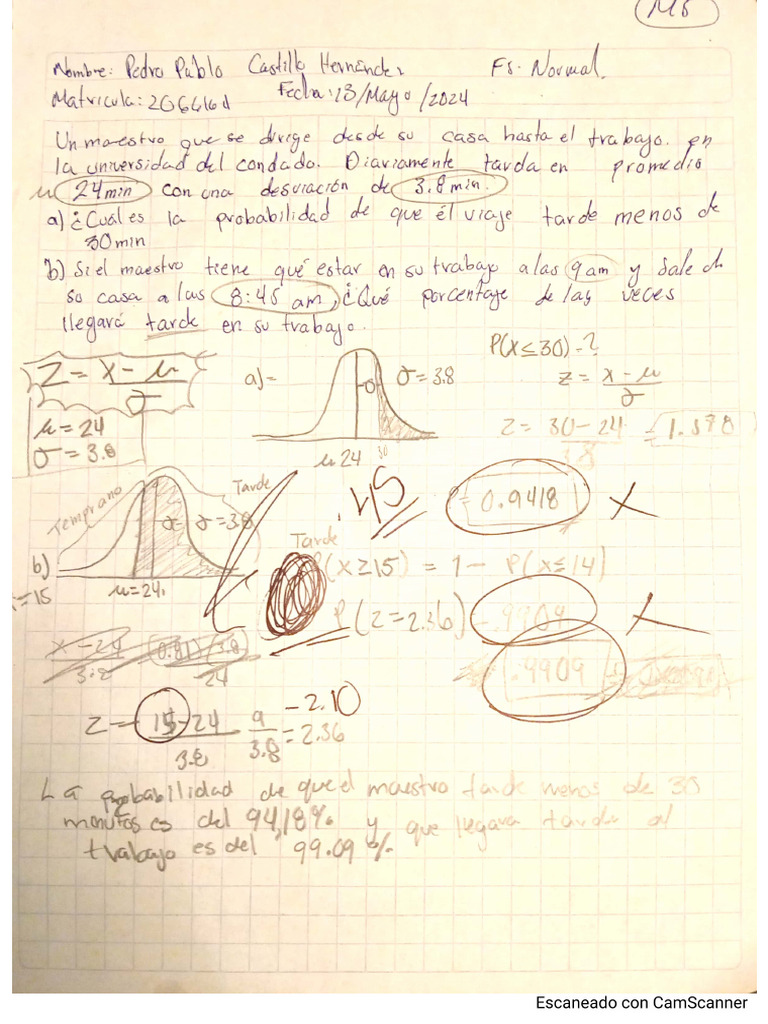 M5
Nombre: Pedro Pablo Castillo Hernández F5. Normal.
Matricula: 2066161 Fecha: 13/Mayo/2024
Un maestro que se dirige desde su casa hasta el trabajo. en
la universidad del condado. Diariamente tarda en promedio
μ 24min con una desviación de 3.8 min.
a) ¿Cuál es la probabilidad de que él viaje tarde menos de
30min
b) Si el maestro tiene qué estar en su trabajo a las 9am y sale de
su casa a las 8:45 am, ¿Qué porcentaje de las veces
llegará tarde en su trabajo.
P(X≤30)=?
Z = x - μ / σ
a)=
σ = 3.8
z = x - μ / σ
μ = 24
σ = 3.8
Z = 30 - 24 / 3.8 = 1.578
μ 24 30
Temprano
Tarde
.45
P= 0.9418
σ = 3.8
Tarde
b)
P(X≥15) = 1 - P(X≤14)
=15
μ=24
P(Z=2.36) .9909
x - 24 / 3.8 (0.81)(3.8) / 24
.9909
Z = 15 - 24 / 3.8 9 / 3.8 = 2.36
-2.10
La probabilidad de que el maestro tarde menos de 30
minutos es del 94,18% y que llegara tarde al
trabajo es del 99.09%
Escaneado con CamScanner